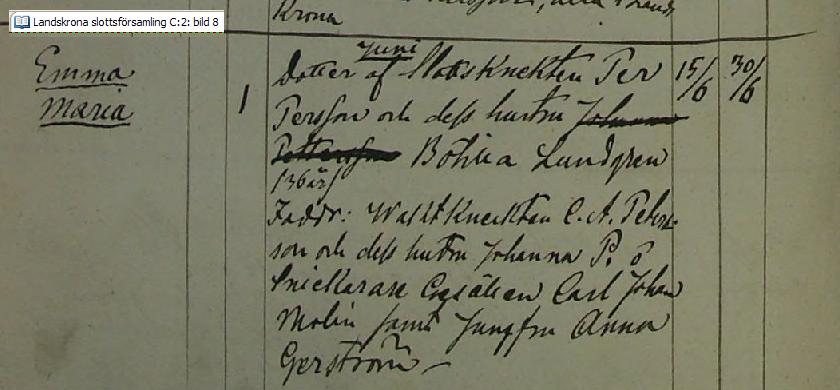 Landskrona slottsförsamling C:2: bild 8
Krona
Juni
Emma
Maria
1
Dotter af Slottsknekten Per
15/6
30/6
Persson och dess hustru Johanna
Pettersson Bothilla Lundgren
(36 år)
Faddr: Waktknecktan C. A. Pehrs-
son och dess hustru Johanna P. o
Snickare Gesällen Carl Johan
Molin samt Jungfru Anna
Gerström